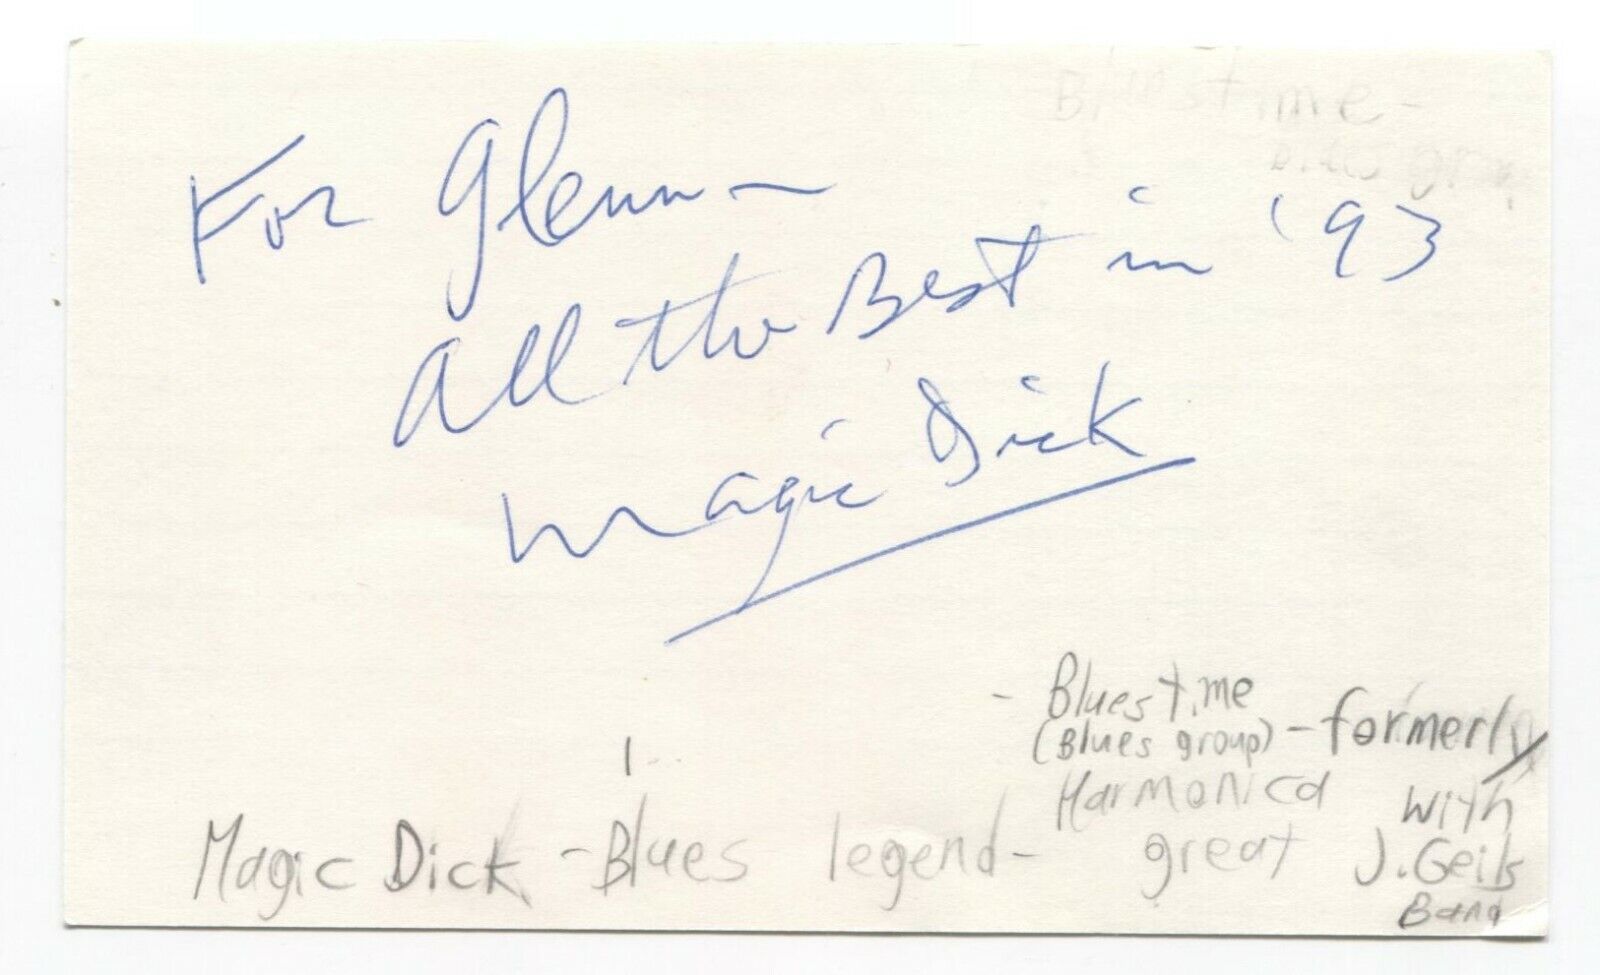 For Glenn -
All the Best in '93
Magic Dick
- Bluestime
(Blues group) - formerly
Harmonica with
Magic Dick - Blues legend - great J. Geils
Band
Bluestime -